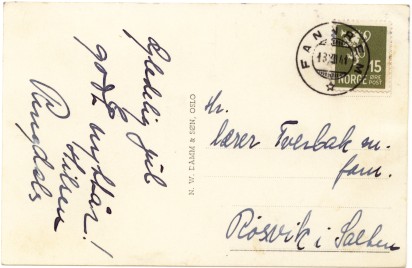 Gledelig jul
& godt nyttår!
Hilsen
Ringdals
N. W. DAMM & SØN, OSLO
FANNREM
13 XII 41
15
NORGE ØRE
POST
Hr.
lærer Tverbak m.
fam.
Rösvik i Salten